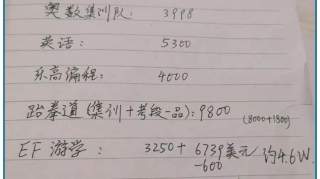 奥数集训队: 3998
英语: 5300
乐高编程: 4000
跆拳道(集训+考段一品): 9800
(8000+1800)
EF 游学: 3250+6739美元 约4.6W
-600